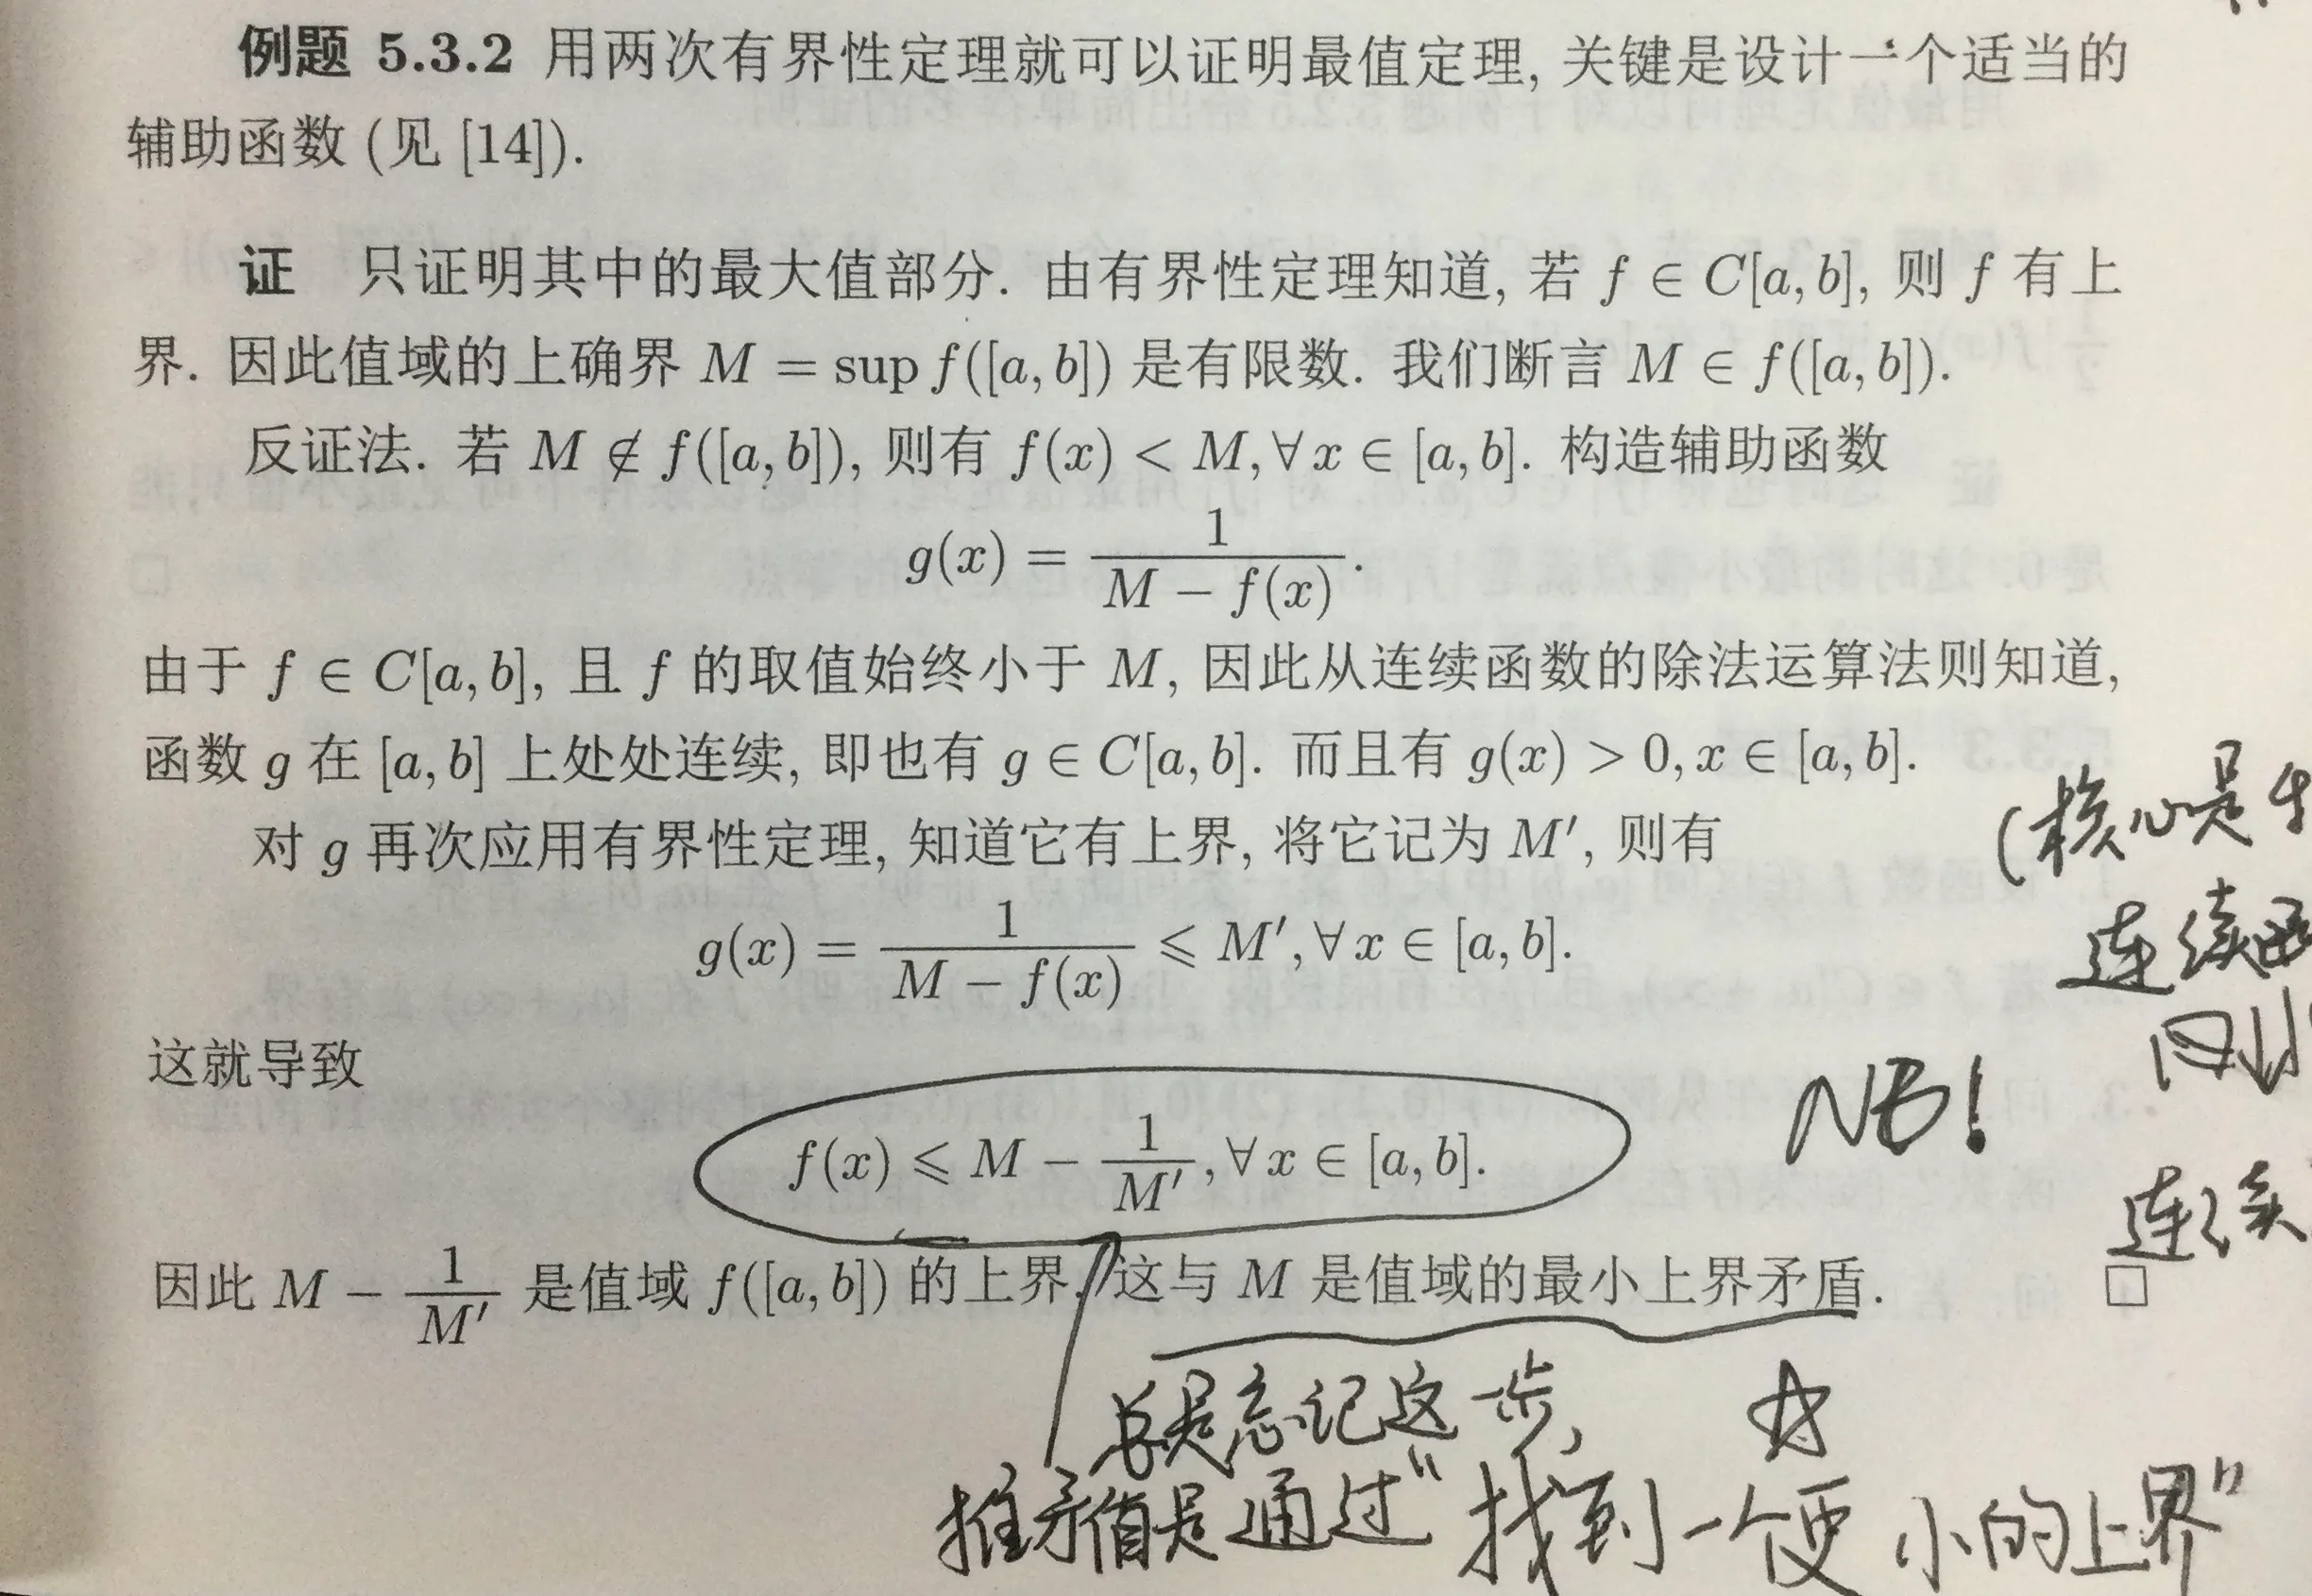 例题 5.3.2 用两次有界性定理就可以证明最值定理, 关键是设计一个适当的
辅助函数 (见 [14]).
证 只证明其中的最大值部分. 由有界性定理知道, 若 f ∈ C[a, b], 则 f 有上
界. 因此值域的上确界 M = sup f([a, b]) 是有限数. 我们断言 M ∈ f([a, b]).
反证法. 若 M ∉ f([a, b]), 则有 f(x) < M, ∀ x ∈ [a, b]. 构造辅助函数
g(x) = 1/(M − f(x)).
由于 f ∈ C[a, b], 且 f 的取值始终小于 M, 因此从连续函数的除法运算法则知道,
函数 g 在 [a, b] 上处处连续, 即也有 g ∈ C[a, b]. 而且有 g(x) > 0, x ∈ [a, b].
(核心是
对 g 再次应用有界性定理, 知道它有上界, 将它记为 M′, 则有
连续函
g(x) = 1/(M − f(x)) ⩽ M′, ∀ x ∈ [a, b].
这就导致
NB!
f(x) ⩽ M − 1/M′, ∀ x ∈ [a, b].
连续
因此 M − 1/M′ 是值域 f([a, b]) 的上界, 这与 M 是值域的最小上界矛盾. □
总是忘记这一步,
推矛盾是通过“找到一个更小的上界”